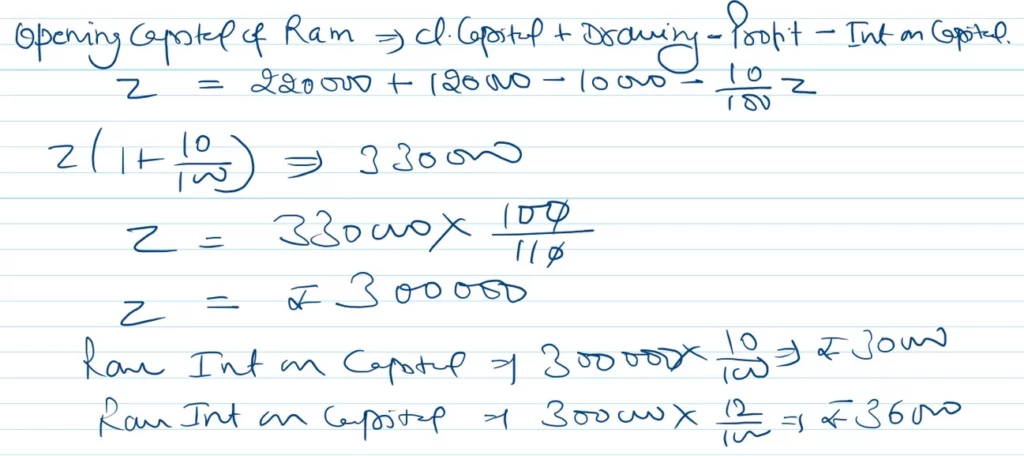 Opening Capital of Ram ⇒ Cl. Capital + Drawing - Profit - Int on Capital.
Z = 220000 + 120000 - 10000 - 10/100 Z
Z(1 + 10/100) ⇒ 330000
Z = 330000 × 100/110
Z = ₹ 300000
Ram Int on Capital ⇒ 300000 × 10/100 ⇒ ₹ 30000
Ram Int on Capital ⇒ 300000 × 12/100 ⇒ ₹ 36000